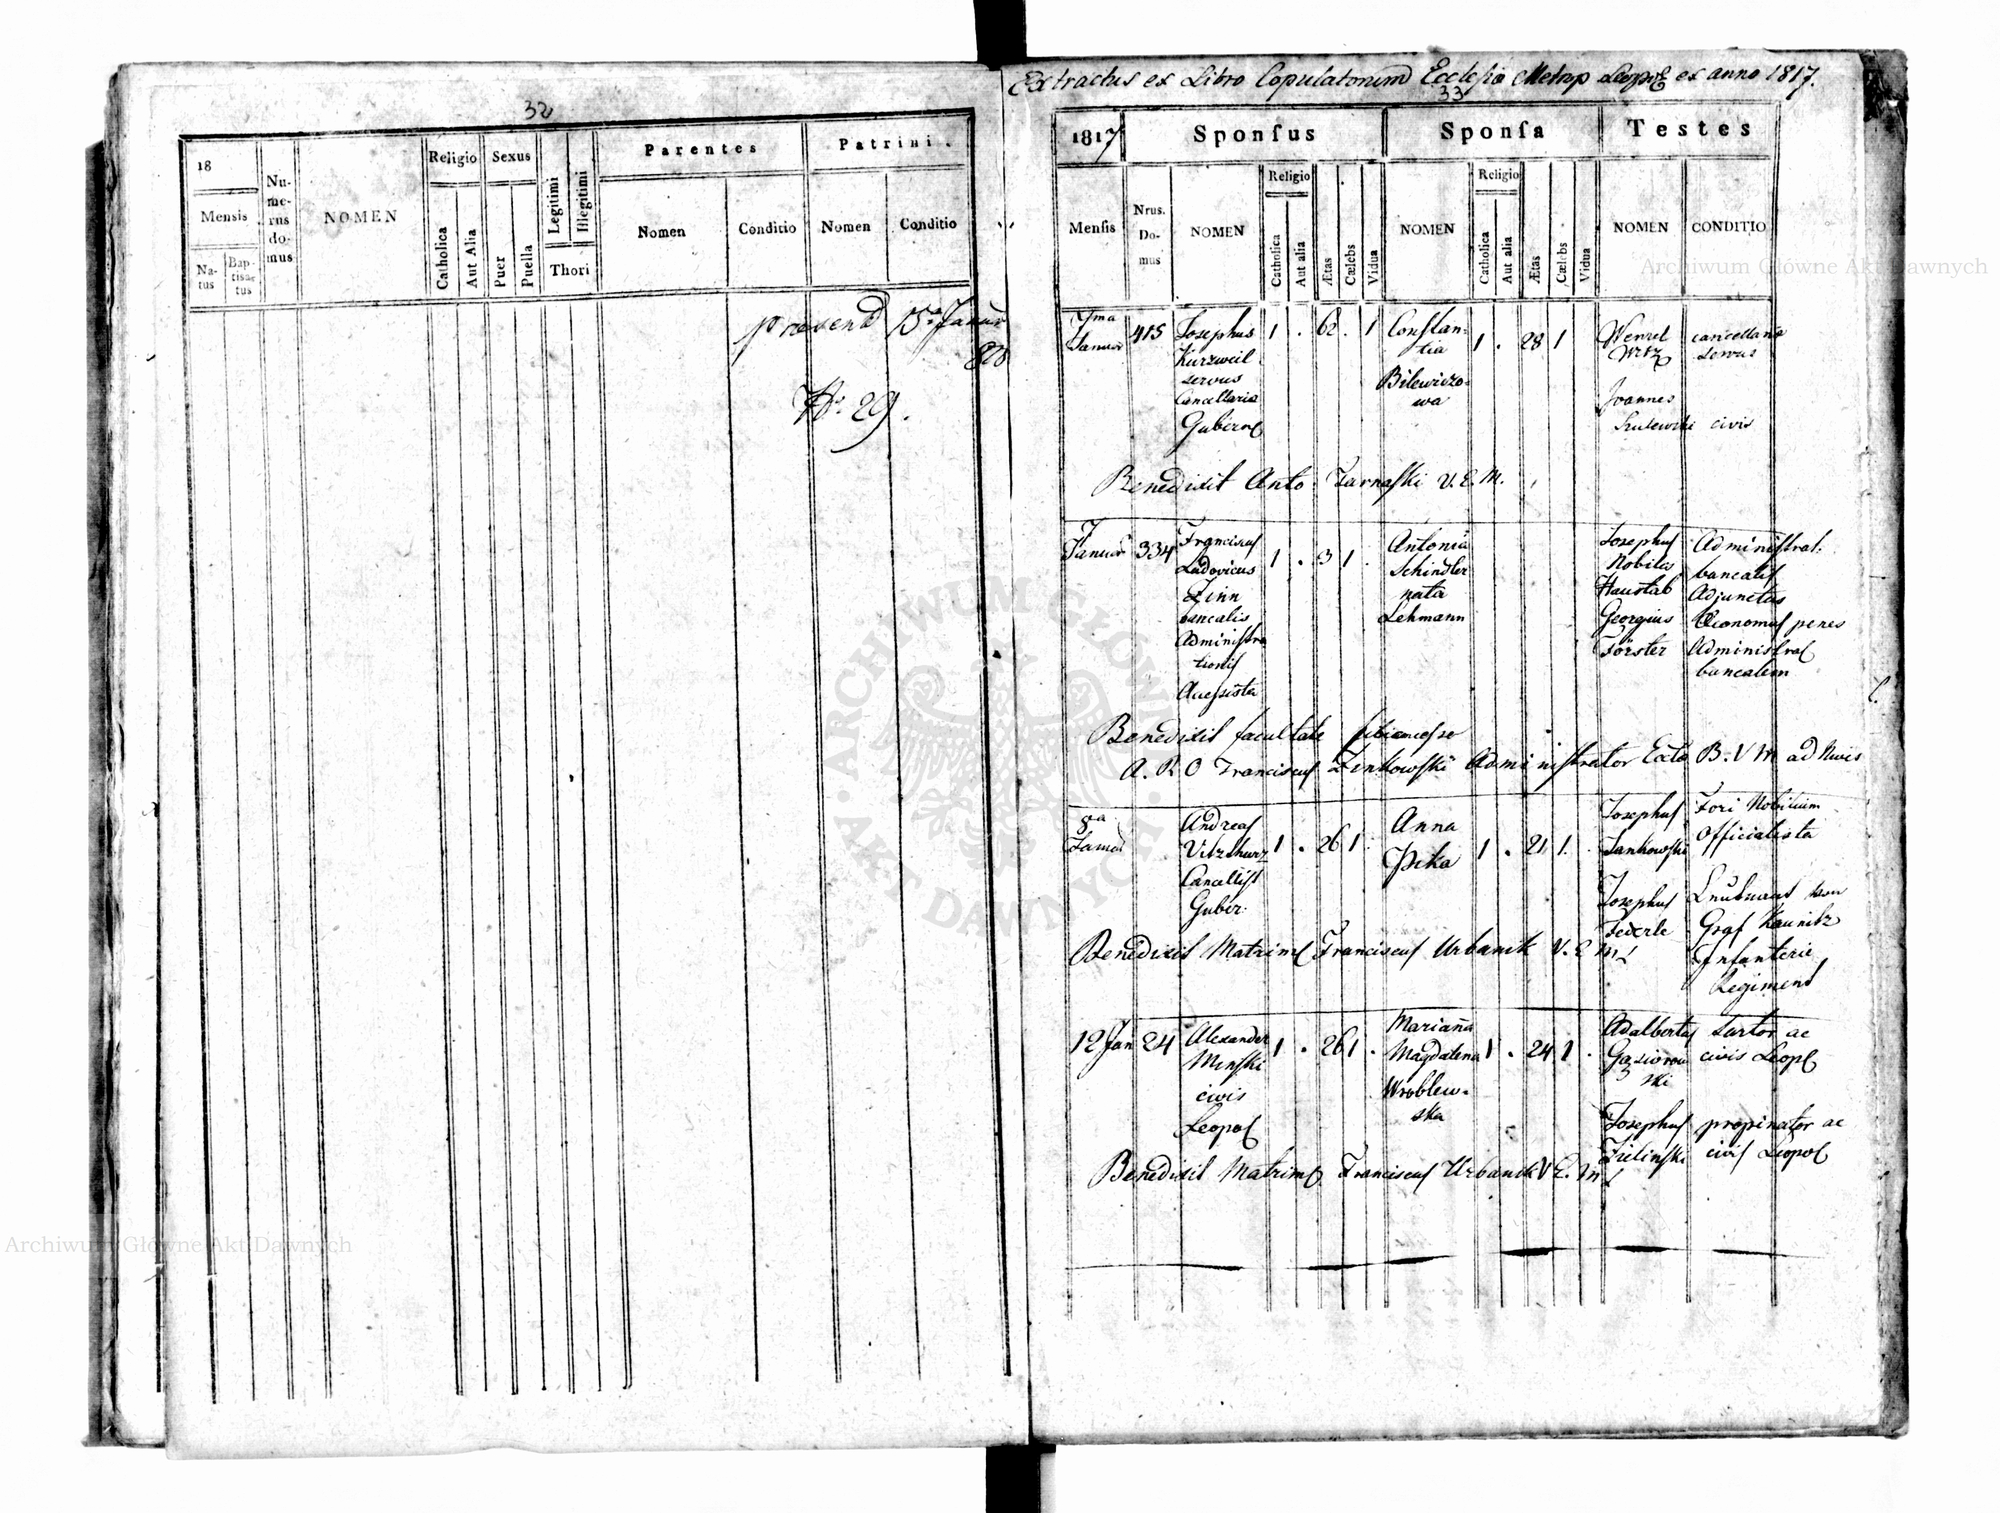 32
18
Mensis
Na-
tus
Bap-
tisa-
tus
Nu-
me-
rus
do-
mus
NOMEN
Religio
Catholica
Aut Alia
Sexus
Puer
Puella
Legitimi
Illegitimi
Thori
Parentes
Nomen
Conditio
Patrini.
Nomen
Conditio
15
Nr. 29.
Extractus ex Libro Copulatorum Ecclesia Metrop Leopol ex anno 1817.
33
1817
Sponſus
Sponſa
Testes
Menſis
Nrus.
Do-
mus
NOMEN
Religio
Catholica
Aut alia
Ætas
Cælebs
Vidua
NOMEN
Religio
Catholica
Aut alia
Ætas
Cælebs
Vidua
NOMEN
CONDITIO
7ma
Januar
415
Josephus
Kurzweil
servus
Cancellaria
Gubern
1 . 62 . 1
Constan-
tia
Bilewiczo-
wa
1 . 28 1
Wenzel
cancellaria
servus
Joannes
civis
Benedixit Anto Tarnaſki V. E. M.
7
Januar
334
Franciscuſ
Ludovicus
Zinn
bancalis
Adminiſtra
tioniſ
1 . 3 1
Antonia
Schindler
nata
Lehmann
Josephuſ
Nobilis
Haustab
Georgius
Förster
Adminiſtrat.
bancaliſ
Adjunctus
Œconomuſ penes
Administral
bancalem
Benedixit facultate
A. R. D Franciscuſ Zinkowſki Adminiſtrator B. V M ad Nivis
8va
Januar
Andreaſ
Cancelliſt
Guber.
1 . 26 1
Anna
1 . 21 1.
Josephuſ
Jankowſki
Fori Nobilium
Officialista
Josephuſ
Federle
von
Graf Kaunitz
Infanterie
Regiment
Benedixit Matrim Franciscuſ Urbanik V. E M
12 Jan
24
Alexander
Minſki
civis
Leopol
1 . 26 1 .
Marianna
Magdalena
Wroblew-
ska
1 . 24 1 .
Adalbertuſ
Gąsiorow
ski
Sartor ac
civis Leopol
Josephuſ
Zielinſki
propinator ac
civiſ Leopol
Benedixit Matrim Franciscuſ Urbanik V E. M
Archiwum Główne Akt Dawnych
Archiwum Główne Akt Dawnych
ARCHIWUM GŁÓWNE · AKT DAWNYCH ·